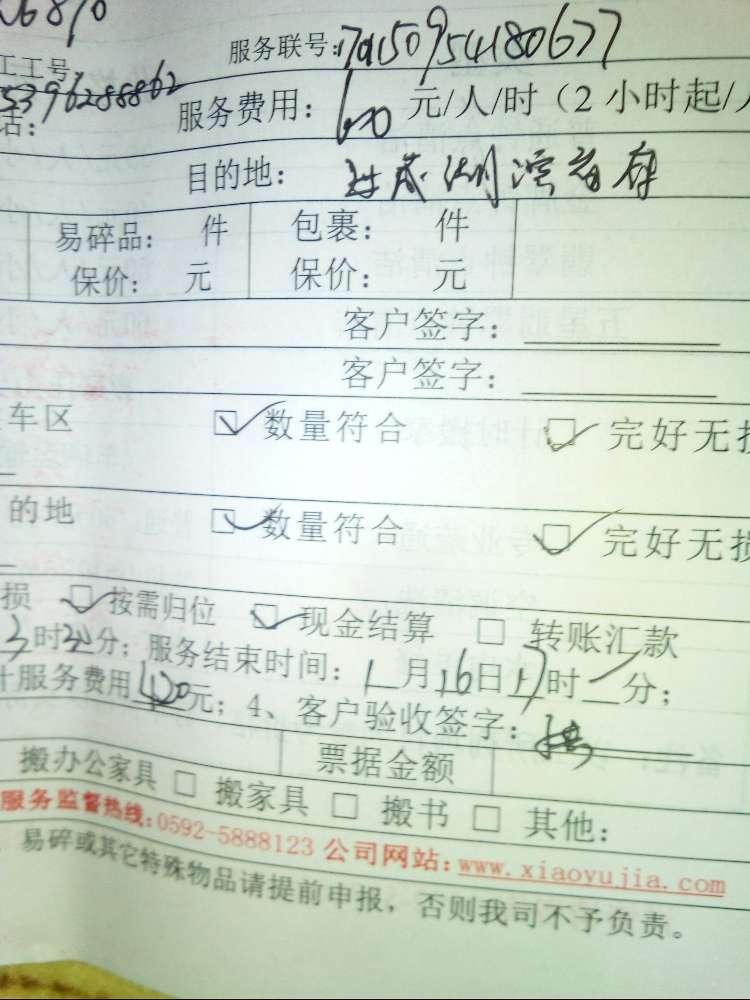 服务联号:
工工号:
53996288862
话: 服务费用: 60 元/人/时（2小时起/人
目的地:
易碎品: 件 包裹: 件
保价: 元 保价: 元
客户签字:
客户签字:
车区 数量符合 完好无损
的地 数量符合 完好无损
损 按需归位 现金结算 转账汇款
时 分；服务结束时间: 1月16日17时 分；
计服务费用 元；4、客户验收签字:
票据金额
搬办公家具 搬家具 搬书 其他:
服务监督热线:0592-5888123 公司网站:www.xiaoyujia.com
易碎或其它特殊物品请提前申报，否则我司不予负责。